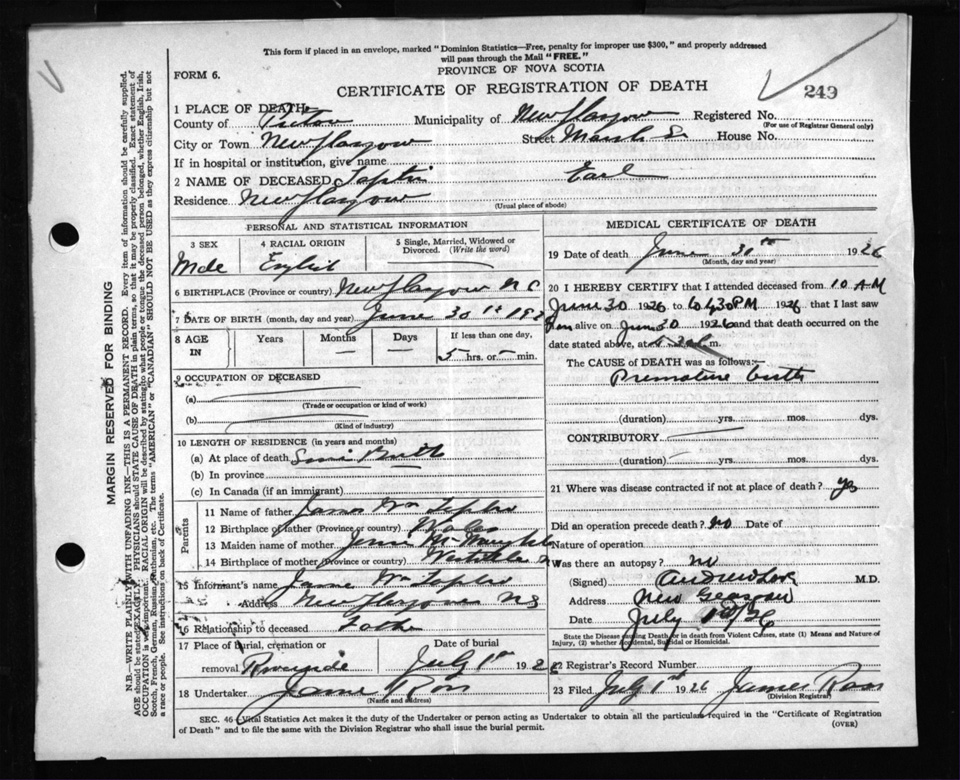 This form if placed in an envelope, marked "Dominion Statistics—Free, penalty for improper use $300," and properly addressed
will pass through the Mail "FREE."
PROVINCE OF NOVA SCOTIA
FORM 6.
CERTIFICATE OF REGISTRATION OF DEATH
249
1 PLACE OF DEATH
County of Pictou Municipality of New Glasgow Registered No.
(For use of Registrar General only)
City or Town New Glasgow Street Marsh St House No.
If in hospital or institution, give name
2 NAME OF DECEASED Earl
Residence New Glasgow
(Usual place of abode)
PERSONAL AND STATISTICAL INFORMATION
3 SEX 4 RACIAL ORIGIN 5 Single, Married, Widowed or Divorced. (Write the word)
Male English
6 BIRTHPLACE (Province or country) New Glasgow
7 DATE OF BIRTH (month, day and year) June 30
8 AGE IN Years Months Days If less than one day,
5 hrs. or min.
9 OCCUPATION OF DECEASED
(a)
(Trade or occupation or kind of work)
(b)
(Kind of industry)
10 LENGTH OF RESIDENCE (in years and months)
(a) At place of death Since Birth
(b) In province
(c) In Canada (if an immigrant)
Parents
11 Name of father James Wm
12 Birthplace of father (Province or country) Wales
13 Maiden name of mother Jessie
14 Birthplace of mother (Province or country) Westville
15 Informant's name James Wm
Address New Glasgow NS
16 Relationship to deceased Father
17 Place of burial, cremation or removal Riverside Date of burial July 1st 192
18 Undertaker James Ross
(Name and address)
MEDICAL CERTIFICATE OF DEATH
19 Date of death June 30th 1926
(Month, day and year)
20 I HEREBY CERTIFY that I attended deceased from 10 AM
June 30 1926 to 430 PM 1926 that I last saw
him alive on Jun 30 1926 and that death occurred on
date stated above, at m.
The CAUSE of DEATH was as follows:—
Premature birth
(duration) yrs. mos. dys.
CONTRIBUTORY
(duration) yrs. mos. dys.
21 Where was disease contracted if not at place of death? yes
Did an operation precede death? No Date of
Nature of operation
Was there an autopsy? no
(Signed) Andrew M.D.
Address New Glasgow
Date July
State the Disease causing Death, or in death from Violent Causes, state (1) Means and Nature of
Injury, (2) whether Accidental, Suicidal or Homicidal.
22 Registrar's Record Number
23 Filed July 1st 1926 James Ross
(Division Registrar)
SEC. 46 (Vital Statistics Act makes it the duty of the Undertaker or person acting as Undertaker to obtain all the particulars required in the "Certificate of Registration
of Death" and to file the same with the Division Registrar who shall issue the burial permit. (OVER)
MARGIN RESERVED FOR BINDING
N.B.—WRITE PLAINLY WITH UNFADING INK—THIS IS A PERMANENT RECORD. Every item of information should be carefully supplied.
AGE should be stated EXACTLY. PHYSICIANS should STATE CAUSE OF DEATH in plain terms, so that it may be properly classified. Exact statement of
OCCUPATION is very important. RACIAL ORIGIN will be described by stating to what people or tongue the deceased person belonged, whether English, Irish,
Scotch, French, German, Russian, Ruthenian, etc. The terms "AMERICAN" or "CANADIAN" SHOULD NOT BE USED as they express citizenship but not
a race or people. See instructions on back of Certificate.